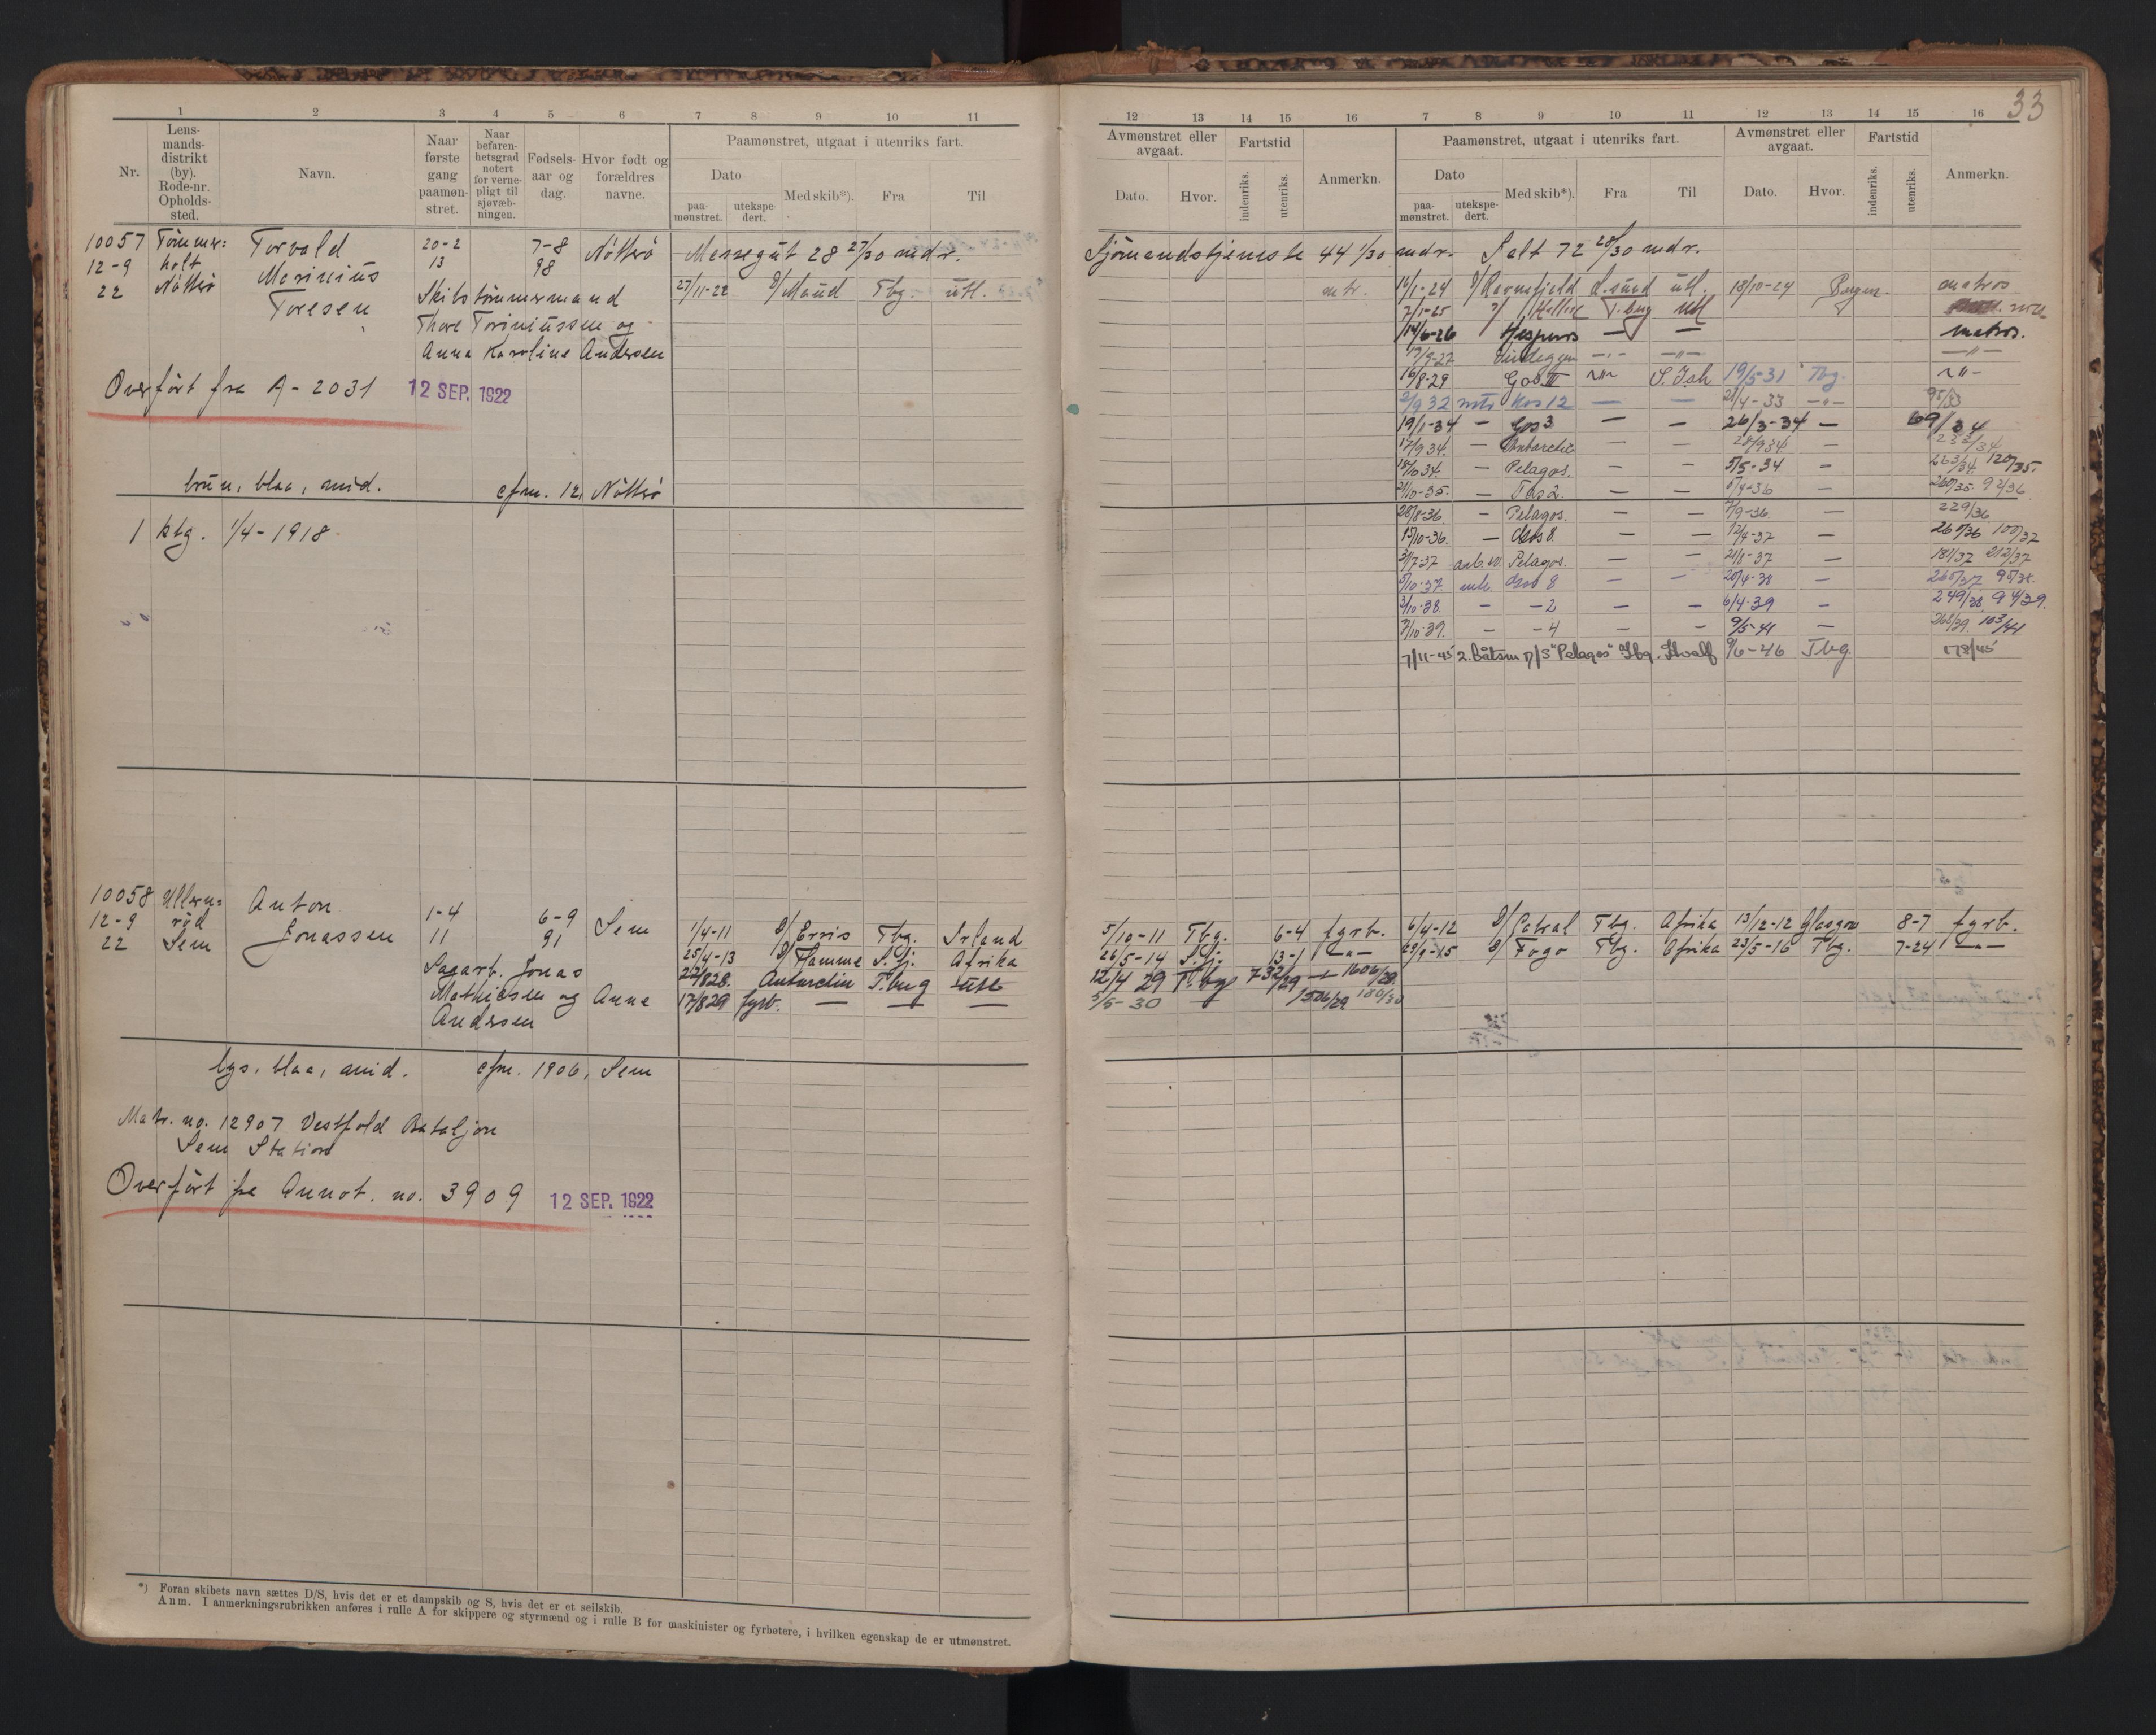 33
1 2 3 4 5 6 7 8 9 10 11
Nr.
Lens-
mands-
distrikt
(by).
Rode-nr.
Opholds-
sted.
Navn.
Naar
første
gang
paamøn-
stret.
Naar
befaren-
hetsgrad
notert
for verne-
pligt til
sjøvæb-
ningen.
Fødsels-
aar og
dag.
Hvor født og
forældres
navne.
Paamønstret, utgaat i utenriks fart.
Dato
paa-
mønstret.
utekspe-
dert.
Med skib*).
Fra
Til
12 13 14 15 16 7 8 9 10 11 12 13 14 15 16
Avmønstret eller
avgaat.
Dato.
Hvor.
Fartstid
indenriks.
utenriks.
Anmerkn.
Paamønstret, utgaat i utenriks fart.
Dato
paa-
mønstret.
utekspe-
dert.
Med skib*).
Fra
Til
Avmønstret eller
avgaat.
Dato.
Hvor.
Fartstid
indenriks.
utenriks.
Anmerkn.
10057
12-9
22
Tömmer=
holt
Nötterö
Torvald
Marinius
Toresen
20-2
13
7-8
98
Nötterö
Skibstömmermand
Thore Toriniussen og
Anna Karoline Andersen
Overfört fra A-2031 12 SEP. 1922
brun, blaa, mid. cfm. 12, Nötterö
1 ktg. 1/4-1918
Messegut 28 27/30 mdr.
27/11-22 D/ Maud Tbg. utl.
Sjömandstjeneste 44 1/30 mdr. Salt 72 28/30 mdr.
mtr. 16/1-24 D/ Ravnefjeld L.sund utl. 18/10-24 Bergen. matros
2/1-25 T.berg Utl
14/6-26 Hesperus — — matros.
19/9-27 Lindeggen -"- -"- -"-
16/8-29 Gos III -"- S. Ish 19/5-31 Tbg. -"-
2/9 32 mtr Kos 12 — — 21/4-33 -"- 95/33
19/1-34 — Gos 3 — — 26/3-34 — 69/34
17/9 34. — Antarctic — — 28/9 34. — 233/34
18/10 34. — Pelagos. — — 5/5-34 — 263/34 120/35.
21/10-35. — Tas 2. — — 8/4-36 — 260/35. 92/36
28/8-36. — Pelagos. — — 7/9-36. — 229/36
15/10-36. — Gos 8. — — 12/4-37 — 260/36 100/37
3/7-37 arb. Pelagos. — — 21/8-37 — 181/37 213/37
5/10-37. mtr. Gos 8 — — 20/4-38 — 265/37 95/38.
3/10-38. — - 2 — — 6/4-39 — 249/38 94/39.
7/10-39. — - 4 — — 9/5-41 — 268/39. 103/41
7/11-45 2. Båtsm D/S "Pelagos" Tbg. Hvalf 9/6-46 Tbg. 178/45
10058
12-9
22
Ullern=
röd
Sem
Anton
Jonassen
1-4
11
6-9
91
Sem
Sagarb. Jonas
Mathiesen og Anna
Andersen
1/4-11 D/ Erris Tbg. Irland
25/4-13 D/ Tamme S.fj. Afrika
22/8 28. Antarctic T.berg Utl
17/8 29 fyrb. — — —
5/10-11 Tbg. 6-4 fyrb. 6/4-12 D/ Catral Tbg. Afrika 13/12-12 Glasgow 8-7 fyrb.
26/5-14 S.fj. 13-1 -"- 29/9-15 D/ Fogo Tbg. Afrika 23/5-16 Tbg. 7-24 -"-
12/4 29 T.bg 732/29 1606/28.
3/5-30 — 1506/29 180/30
lys, blaa, mid. cfm. 1906, Sem
Matr. no. 12907 Vestfold Bataljon
Sem Station
Overfört fra Annot. no. 3909 12 SEP. 1922
*) Foran skibets navn sættes D/S, hvis det er et dampskib og S, hvis det er et seilskib.
Anm. I anmerkningsrubrikken anføres i rulle A for skippere og styrmænd og i rulle B for maskinister og fyrbøtere, i hvilken egenskap de er utmønstret.